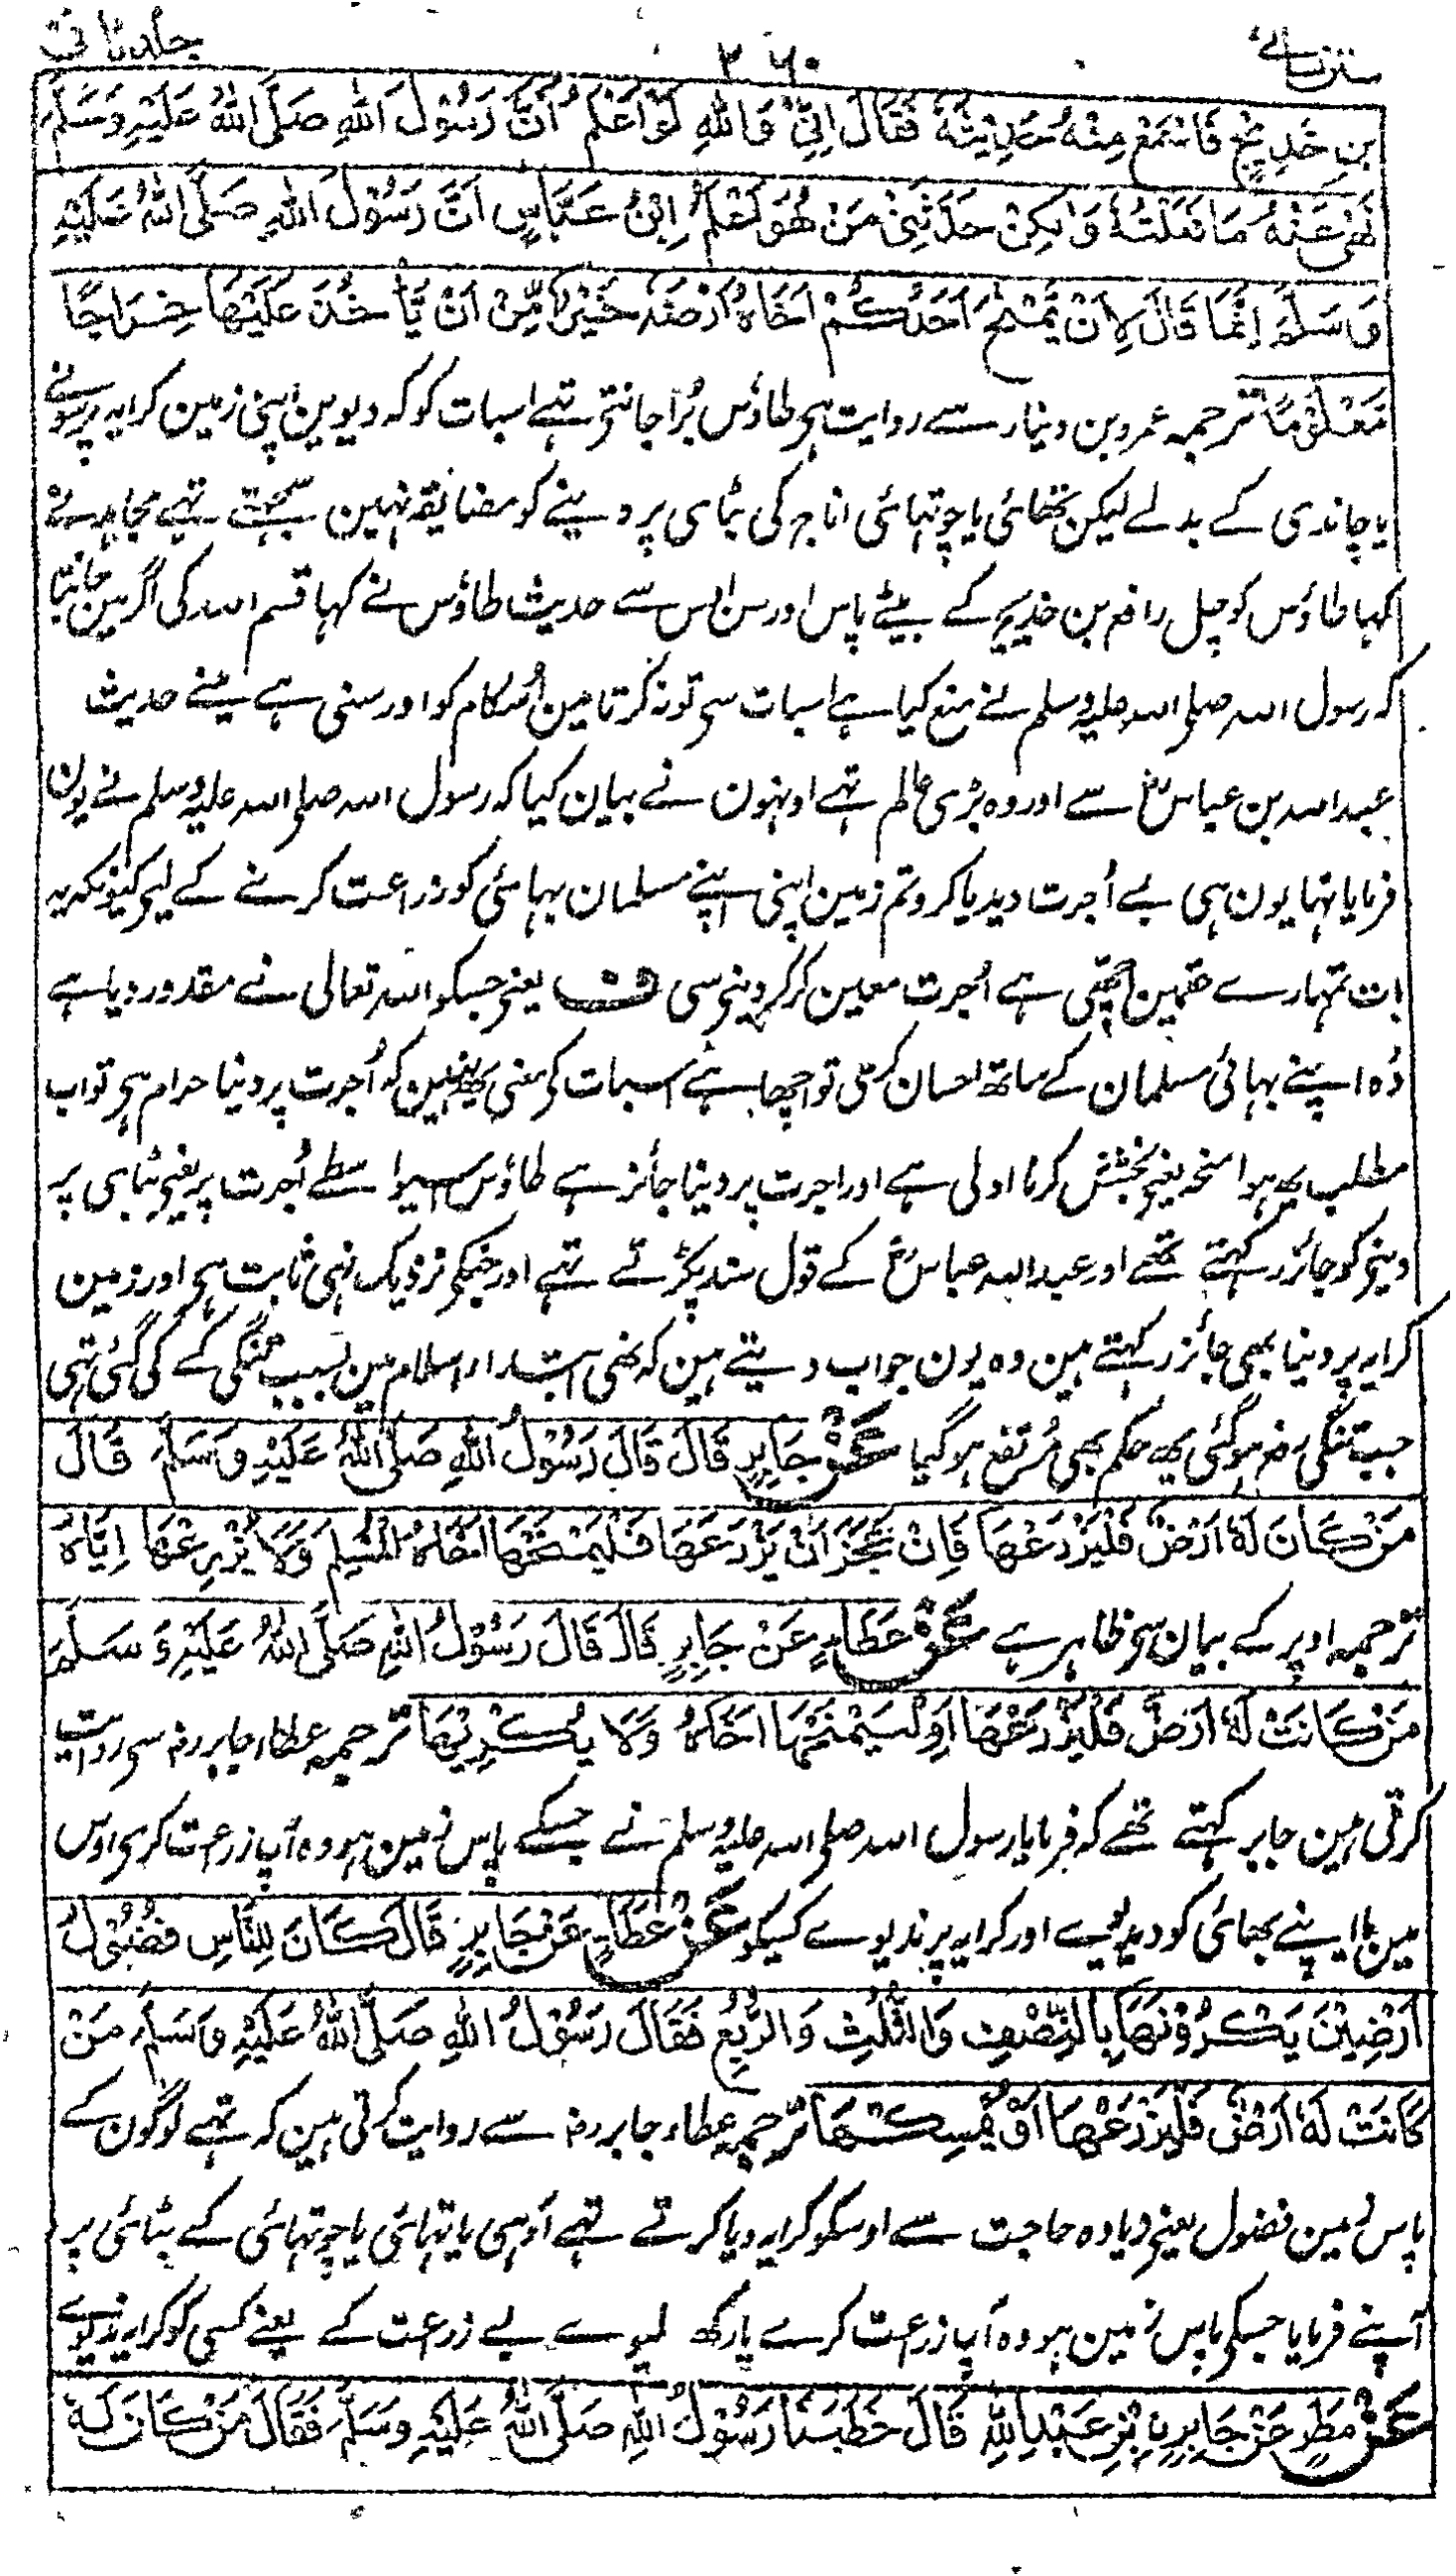 سنن نسائے
۳۶۰
جلد ثانی
بْنِ خَدِيْجٍ فَاسْمَعْ مِنْهُ حَدِيْثَهٗ فَقَالَ اِنِّيْ وَاللّٰهِ لَوْ اَعْلَمُ اَنَّ رَسُوْلَ اللّٰهِ صَلَّى اللّٰهُ عَلَيْهِ وَسَلَّمَ
نَهٰى عَنْهُ مَا فَعَلْتُهٗ وَلٰكِنْ حَدَّثَنِيْ مَنْ هُوَ اَعْلَمُ اِبْنُ عَبَّاسٍ اَنَّ رَسُوْلَ اللّٰهِ صَلَّى اللّٰهُ عَلَيْهِ
وَسَلَّمَ اِنَّمَا قَالَ لِاَنْ يَّمْنَحَ اَحَدُكُمْ اَخَاهُ اَرْضَهٗ خَيْرٌ مِّنْ اَنْ يَّاْخُذَ عَلَيْهَا خِرَاجًا
مَعْلُوْمًا ترجمہ عمرو بن دینار سے روایت ہی طاؤس بُرا جانتی تہے اسبات کو کہ دیوین اپنی زمین کرایہ پر سونے
یا چاندی کے بدلے لیکن تہائی یا چوتہائی اناج کی بٹائی پر دینے کو مضایقہ نہین سمجہتے تہے مجاہد نے
کہا طاؤس کو چل رافع بن خدیج کے بیٹے پاس اور سن اوس سے حدیث طاؤس نے کہا قسم اللہ کی اگر مین جانتا
کہ رسول اللہ صلی اللہ علیہ وسلم نے منع کیا ہے اسبات سی تو نہ کرتا مین اُس کام کو اور سنی ہے مینے حدیث
عبداللہ بن عباس سے اور وہ بڑی عالم تہے اونہون نے بیان کیا کہ رسول اللہ صلی اللہ علیہ وسلم نے یون
فرمایا تہا یون ہی بے اُجرت دیدیا کرو تم زمین اپنی اپنے مسلمان بہائی کو زراعت کرنے کے لیے کیونکہ یہ
بات تمہارے حقمین اچھی ہے اُجرت معین کر کر دینی سی ف یعنی جسکو اللہ تعالی نے مقدور دیا ہے
وُہ اپنے بہائی مسلمان کے ساتھ احسان کری تو اچھا ہے اسبات کی معنی یہ نہین کہ اُجرت پر دینا حرام ہی تو اب
مطلب یہ ہوا منحہ یعنی بخشش کرنا اولی ہے اور اجرت پر دینا جائز ہے طاؤس اسیواسطے اُجرت پر یعنی بٹائی پر
دینی کو جائز رکہتے تھے اور عبداللہ عباس کے قول سند پکڑتے تہے اور جنکی نزدیک نہی ثابت ہی اور زمین
کرایہ پر دینا بھی جائز رکہتے ہین وہ یون جواب دیتے ہین کہ نہی ابتداء اسلام مین بسبب تنگی کے کی گئی تہی
جب تنگی رفع ہو گئی یہ حکم بھی مرتفع ہو گیا عَنْ جَابِرٍ قَالَ قَالَ رَسُوْلُ اللّٰهِ صَلَّى اللّٰهُ عَلَيْهِ وَسَلَّمَ قَالَ
مَنْ كَانَ لَهٗ اَرْضٌ فَلْيَزْرَعْهَا فَاِنْ عَجَزَ اَنْ يَزْرَعَهَا فَلْيَمْنَحْهَا اَخَاهُ الْمُسْلِمَ وَلَا يُزْرِعْهَا اِيَّاهُ
ترجمہ اوپر کے بیان سی ظاہر ہے عَنْ عَطَاءٍ عَنْ جَابِرٍ قَالَ قَالَ رَسُوْلُ اللّٰهِ صَلَّى اللّٰهُ عَلَيْهِ وَسَلَّمَ
مَنْ كَانَتْ لَهٗ اَرْضٌ فَلْيَزْرَعْهَا اَوْ لِيَمْنَحْهَا اَخَاهُ وَلَا يُكْرِيْهَا ترجمہ عطاء جابر رض سی روایت
کرتی ہین جابر کہتے تھے کہ فرمایا رسول اللہ صلی اللہ علیہ وسلم نے جسکے پاس زمین ہو وہ آپ زراعت کری اوس
مین یا اپنے بھائی کو دیدیوے اور کرایہ پر ندیوے کسیکو عَنْ عَطَاءٍ عَنْ جَابِرٍ قَالَ كَانَ لِلنَّاسِ فُضُوْلُ
اَرَضِيْنَ يَكْرُوْنَهَا بِالنِّصْفِ وَالثُّلُثِ وَالرُّبُعِ فَقَالَ رَسُوْلُ اللّٰهِ صَلَّى اللّٰهُ عَلَيْهِ وَسَلَّمَ مَنْ
كَانَتْ لَهٗ اَرْضٌ فَلْيَزْرَعْهَا اَوْ يُمْسِكْهَا ترجمہ عطاء جابر رض سے روایت کرتی ہین کہ تہے لوگون کے
پاس زمین فضول یعنی زیادہ حاجت سے اوسکو کرایہ دیا کرتے تہے آدہی یا تہائی یا چوتہائی کے بٹائی پر
آپنے فرمایا جسکی پاس زمین ہو وہ آپ زراعت کرے یا رکھ لیوے بے زرعت کے یعنے کسی کو کرایہ ندیوے
عَنْ مَطَرٍ عَنْ جَابِرِ بْنِ عَبْدِاللّٰهِ قَالَ خَطَبَنَا رَسُوْلُ اللّٰهِ صَلَّى اللّٰهُ عَلَيْهِ وَسَلَّمَ فَقَالَ مَنْ كَانَ لَهٗ